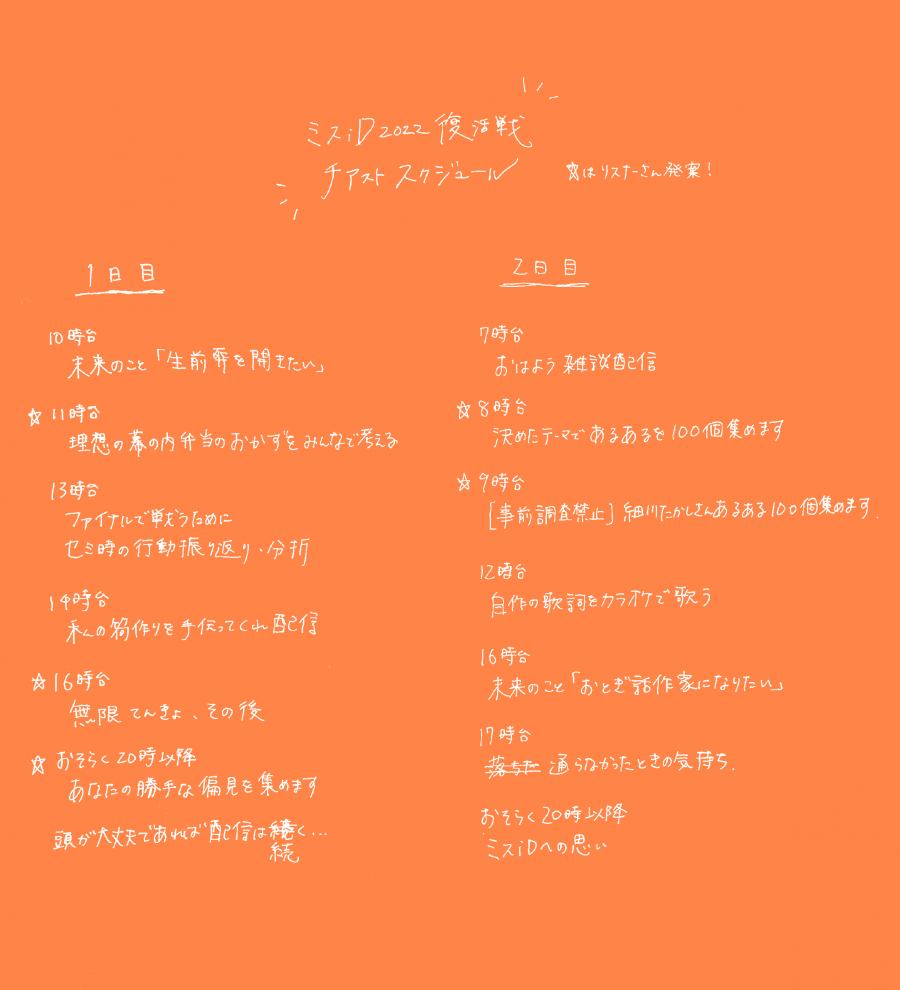 ミスiD2022 復活戦
チアスト スケジュール
☆はリスナーさん発案！
1日目
10時台
未来のこと「生前葬を開きたい」
☆ 11時台
理想の幕の内弁当のおかずをみんなで考える
13時台
ファイナルで戦うために
セミ時の行動振り返り、分析
14時台
私の箱作りを手伝ってくれ配信
☆ 16時台
無限てんきょ、その後
☆ おそらく20時以降
あなたの勝手な偏見を集めます
頭が大丈夫であれば配信は続く…
続
2日目
7時台
おはよう雑談配信
☆ 8時台
決めたテーマであるあるを100個集めます
☆ 9時台
［事前調査禁止］細川たかしさんあるある100個集めます.
12時台
自作の歌詞をカラオケで歌う
16時台
未来のこと「おとぎ話作家になりたい」
17時台
落ちた 通らなかったときの気持ち.
おそらく20時以降
ミスiDへの思い